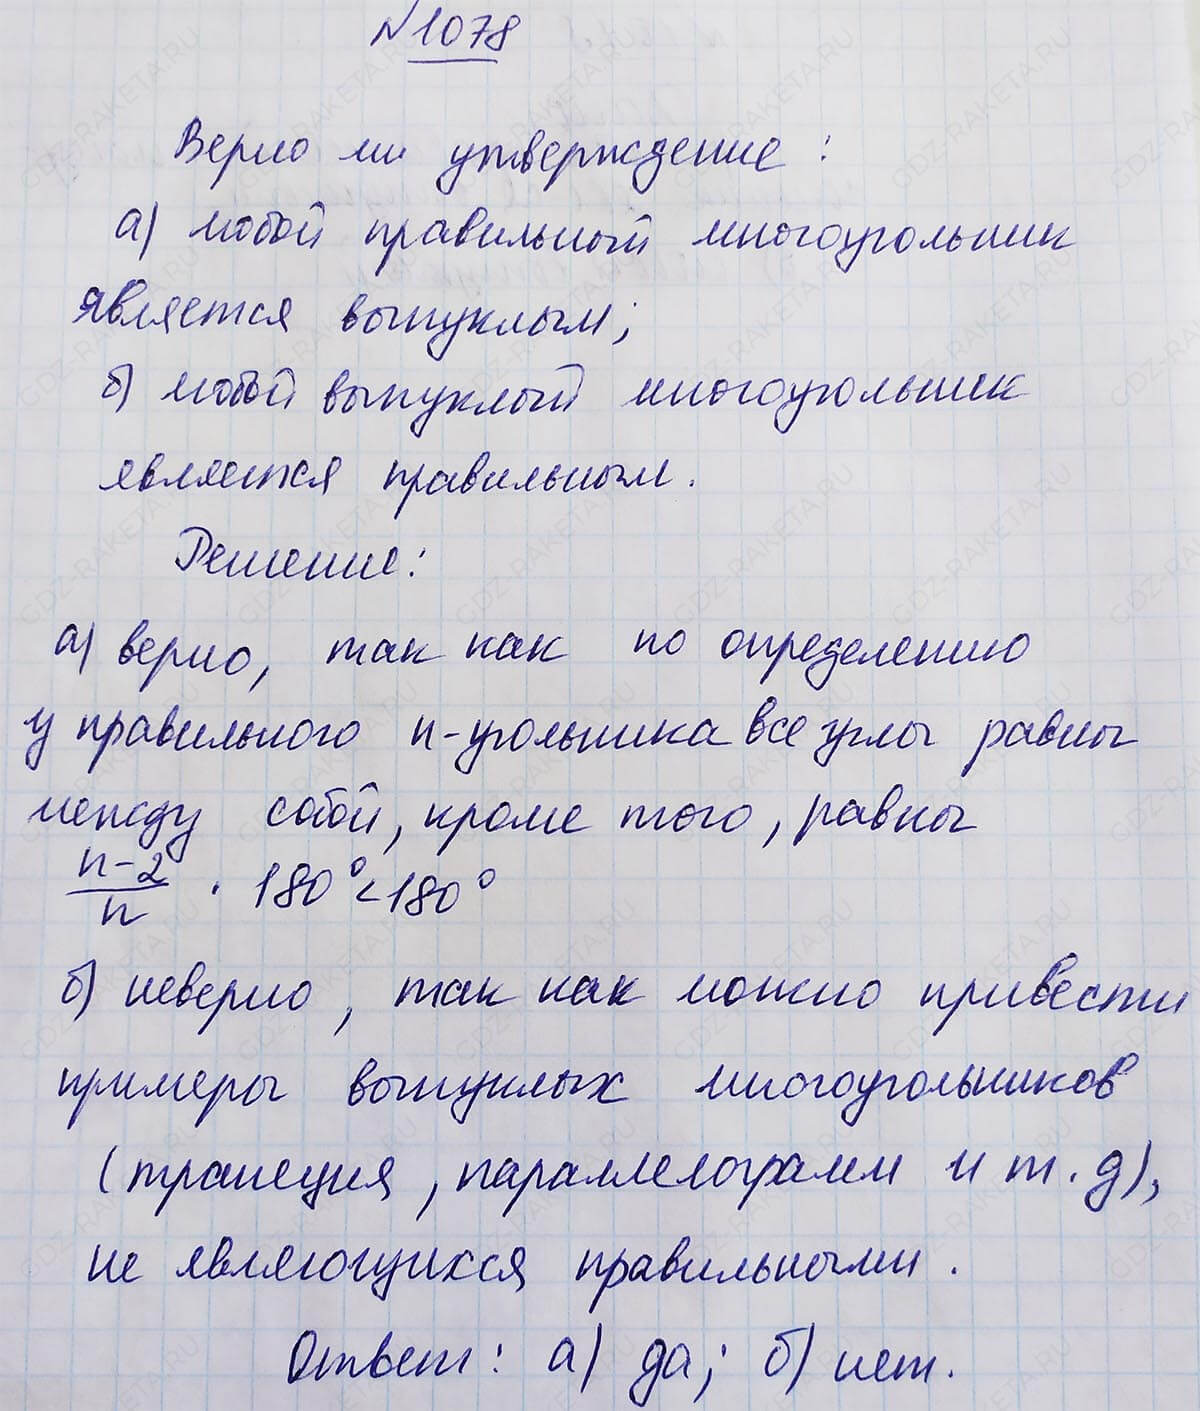 №1078
Верно ли утверждение:
а) любой правильный многоугольник
является выпуклым;
б) любой выпуклый многоугольник
является правильным.
Решение:
а) верно, так как по определению
у правильного n-угольника все углы равны
между собой, кроме того, равны
(n-2)/n · 180° < 180°
б) неверно, так как можно привести
примеры выпуклых многоугольников
(трапеция, параллелограмм и т.д),
не являющихся правильными.
Ответ: а) да; б) нет.
GDZ-RAKETA.RU